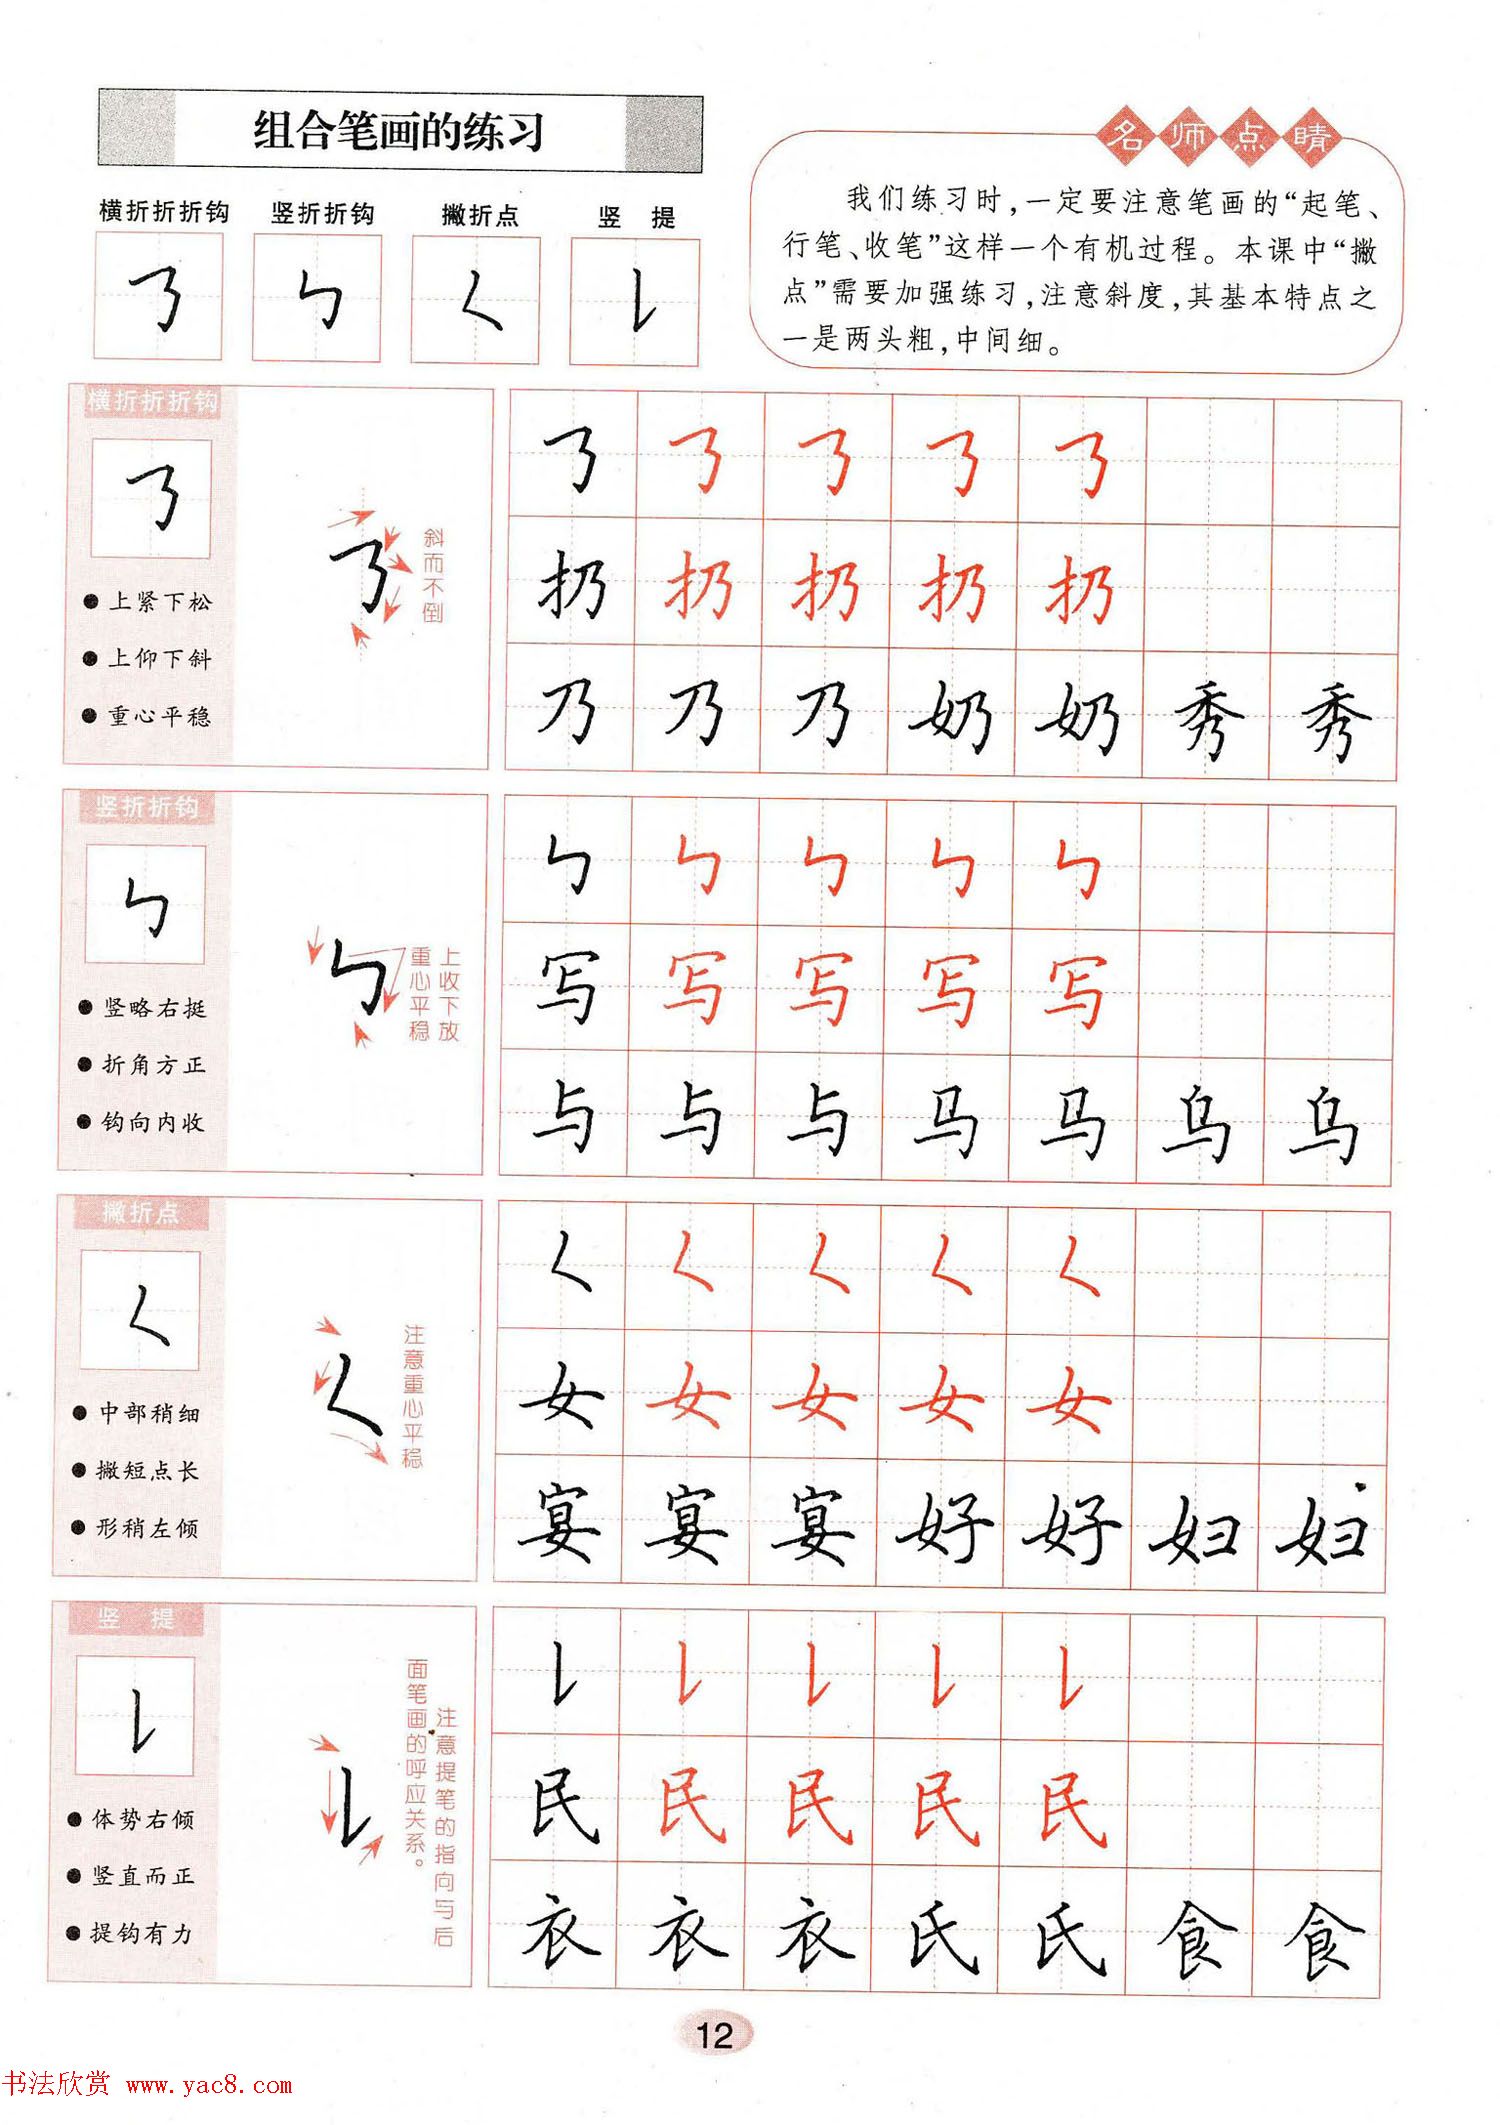 组合笔画的练习
名师点睛
我们练习时,一定要注意笔画的“起笔、
行笔、收笔”这样一个有机过程。本课中“撇
点”需要加强练习,注意斜度,其基本特点之
一是两头粗,中间细。
横折折折钩 竖折折钩 撇折点 竖 提
㇡ ㇉ ㇛ ㇙
横折折折钩
㇡
●上紧下松
●上仰下斜
●重心平稳
㇡
斜而不倒
㇡ ㇡ ㇡ ㇡ ㇡
扔 扔 扔 扔 扔
乃 乃 乃 奶 奶 秀 秀
竖折折钩
㇉
●竖略右挺
●折角方正
●钩向内收
㇉
上收下放
重心平稳
㇉ ㇉ ㇉ ㇉ ㇉
写 写 写 写 写
与 与 与 马 马 乌 乌
撇折点
㇛
●中部稍细
●撇短点长
●形稍左倾
㇛
注意重心平稳
㇛ ㇛ ㇛ ㇛ ㇛
女 女 女 女 女
宴 宴 宴 好 好 妇 妇
竖 提
㇙
●体势右倾
●竖直而正
●提钩有力
㇙
注意提笔的指向与后
面笔画的呼应关系。
㇙ ㇙ ㇙ ㇙ ㇙
民 民 民 民 民
衣 衣 衣 氏 氏 食 食
12
书法欣赏 www.yac8.com